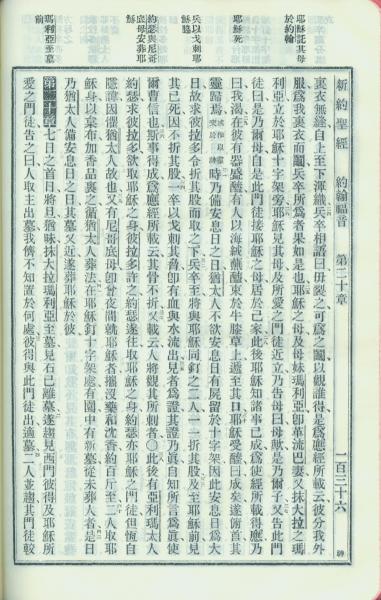 新約聖經 約翰福音 第二十章 一百三十六
耶穌託其母
於約翰
耶穌死
兵以戈刺耶
穌脇
約瑟與尼哥
底母安葬耶
穌
瑪利亞至墓
前
裏衣無縫自上至下渾織兵卒相語曰毋裂之可為之鬮以觀誰得是為應經所載云彼分我外
服為我裏衣而鬮兵卒所為者果如是也耶穌之母及母妹瑪利亞卽革流巴妻又抹大拉之瑪
利亞立於耶穌十字架旁耶穌見其母及所愛之門徒近立乃告母曰母歟是乃爾子又告此門
徒曰是乃爾母自是此門徒接耶穌之母居於己家此後耶穌知諸事已成為使經所載得應乃
曰我渴在彼有器盛醯有人以海絨蘸醯束於牛膝草上遞至其口耶穌受醯曰成矣遂俯首其
靈歸焉時乃備安息日之日猶太人不欲安息日有屍留於十字架因此安息日為大
日故求彼拉多令折其股而取之下兵卒至將與耶穌同釘之二人一一折其股及至耶穌前見
其已死因不折其股一卒以戈刺其脅卽有血與水流出見者為證其證乃眞自知所言為眞使
爾曹信也斯事得成為應經所載云其骨不折又載云人將觀其所刺者此後有亞利瑪太人
約瑟求彼拉多欲取耶穌之身彼拉多許之約瑟遂往取耶穌之身約瑟乃耶穌之門徒但恆自
隱諱因懼猶太人故也又有尼哥底母卽曾夜間就耶穌者攜沒藥和沈香約百斤至二人取耶
穌身以枲布加香品裹之循猶太人葬法在耶穌釘十字架處有園中有新墓從未葬人者是日
乃猶太人備安息日之日其墓又近遂葬耶穌於彼
第二十章七日之首日將旦猶昧抹大拉瑪利亞至墓見石已離墓遂趨見西門彼得及耶穌所
愛之門徒告之曰人取主出墓我儕不知置於何處彼得與此門徒出適墓二人並趨其門徒較